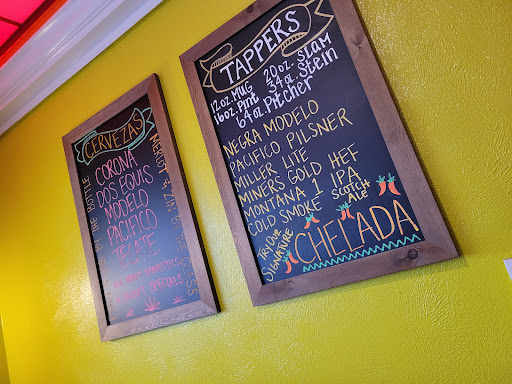 CERVEZAS
BY THE BOTTLE
CORONA
DOS EQUIS
MODELO
PACIFICO
TECATE
SPECIALS
TAPPERS
12oz. MUG 20oz. SLAM
16oz. Pint 34oz. Stein
64oz. Pitcher
NEGRA MODELO
PACIFICO PILSNER
MILLER LITE
MINERS GOLD HEF
MONTANA 1 IPA
COLD SMOKE SCOTCH ALE
TRY OUR SIGNATURE
CHELADA